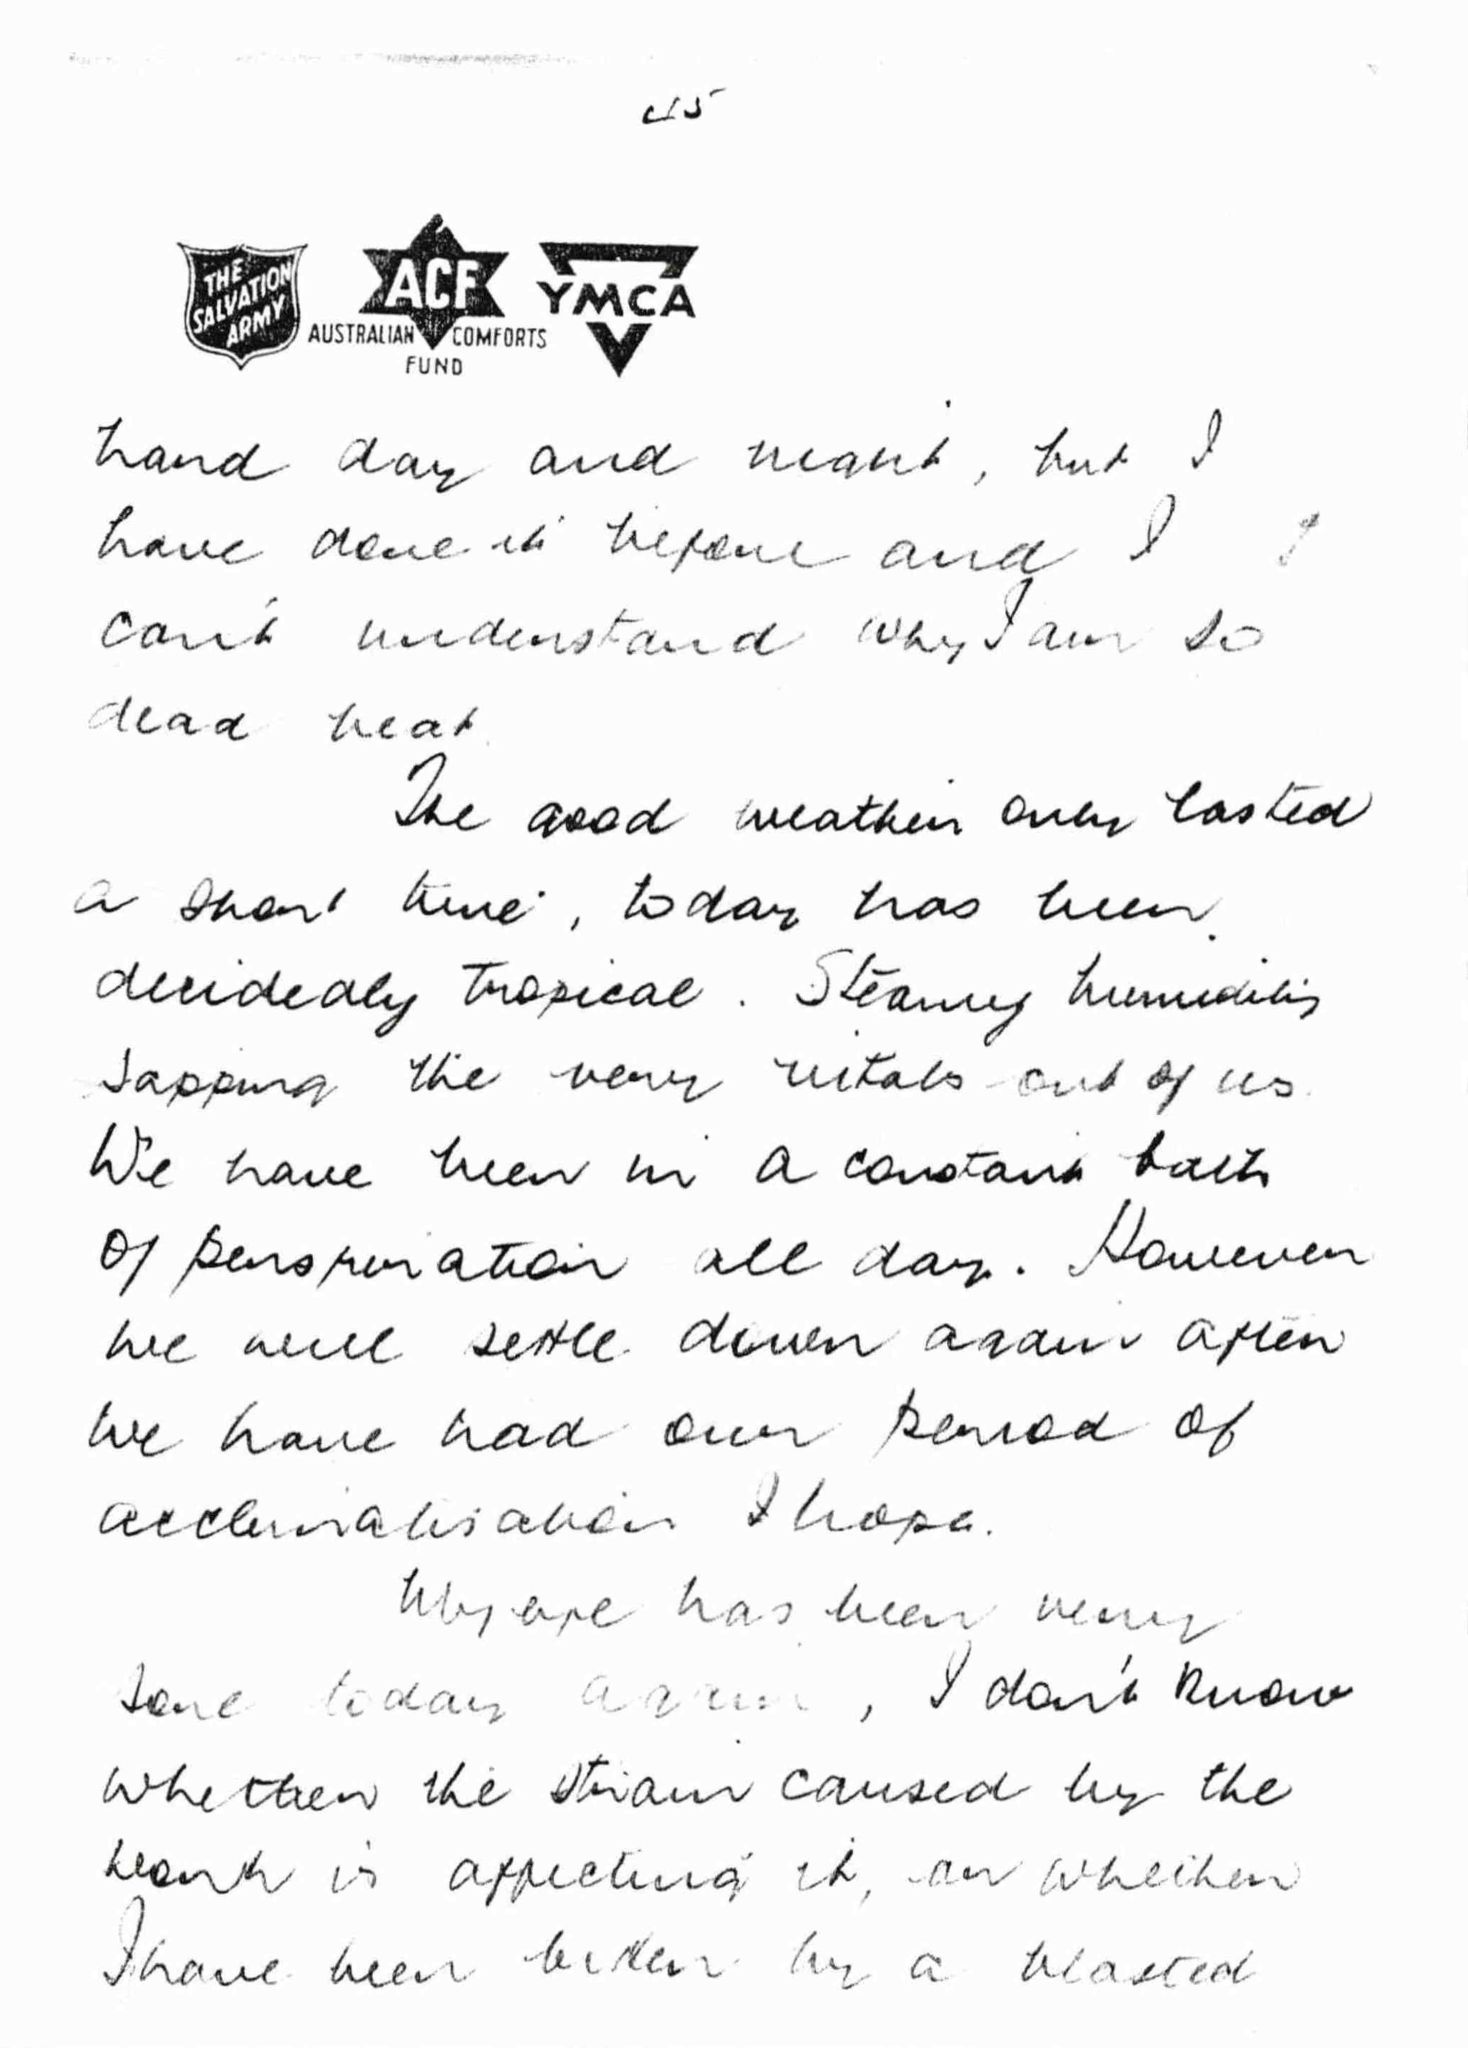 45
THE
SALVATION
ARMY
ACF
AUSTRALIAN COMFORTS
FUND
YMCA
hard day and night, but I
have done it before and I
can't understand why I am so
dead beat.
The good weather only lasted
a short time, today has been
decidedly tropical. Steamy humidity
sapping the very vitals out of us.
We have been in a constant bath
of perspiration all day. However
we will settle down again after
we have had our period of
acclimatisation I hope.
My eye has been very
sore today again, I don't know
whether the strain caused by the
work is affecting it, or whether
I have been bitten by a blasted